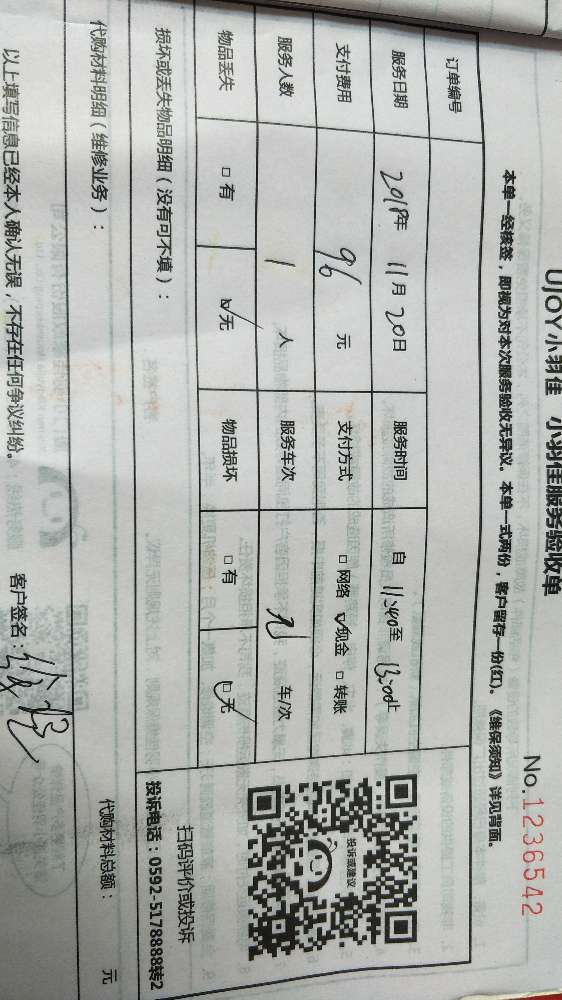 UJOY小羽佳 小羽佳服务验收单
No.1236542
本单一经核签，即视为对本次服务验收无异议。本单一式两份，客户留存一份(红)。《维保须知》详见背面。
订单编号
服务日期 2018年 11月 20日 服务时间 自 11:40至 13:00止
支付费用 96 元 支付方式 □ 网络 ☑ 现金 □ 转账
服务人数 1 人 服务车次 车/次
物品丢失 □ 有 ☑ 无 物品损坏 □ 有 ☑ 无
损坏或丢失物品明细（没有可不填）：
投诉或建议
扫码评价或投诉
投诉电话：0592-5178888转2
代购材料明细（维修业务）： 代购材料总额： 元
以上填写信息已经本人确认无误，不存在任何争议纠纷。 客户签名：